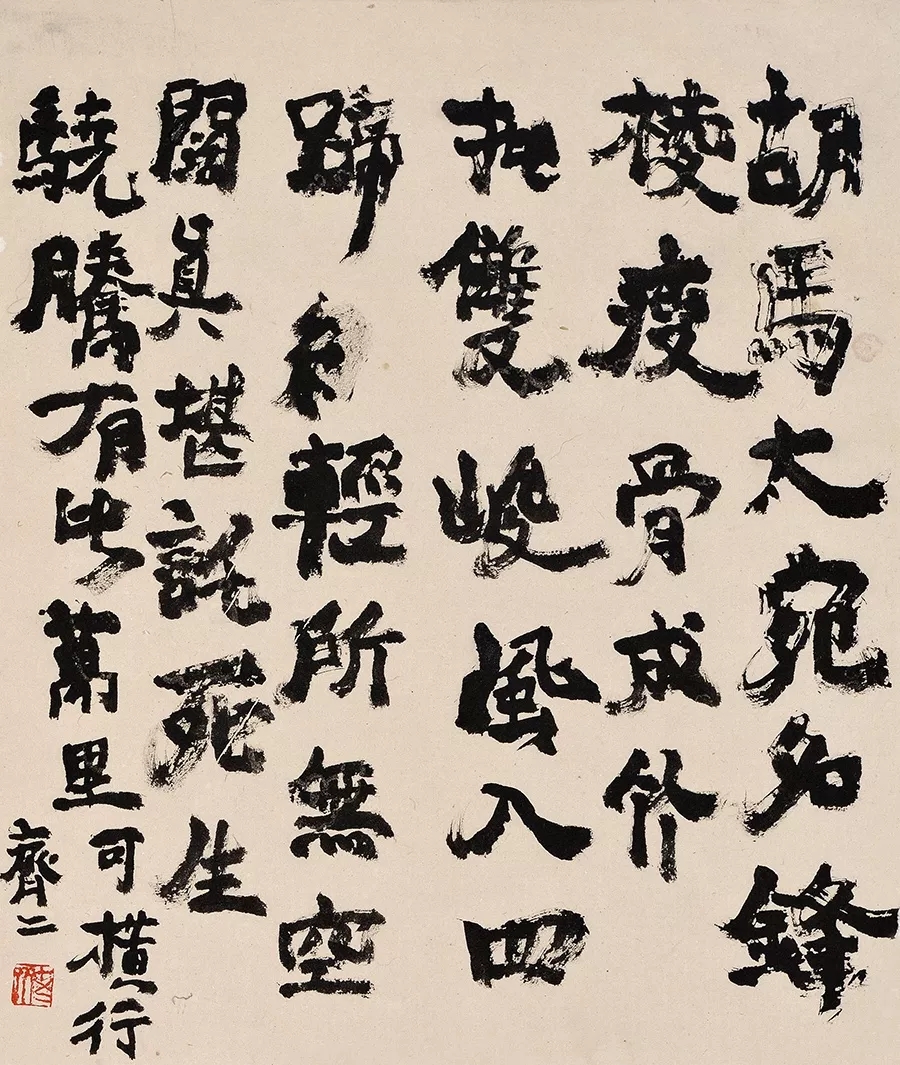 胡馬大宛名鋒
棱瘦骨成竹
批雙峻風入四
蹄輕所無空
闊真堪託死生
驍騰有此萬里可橫行
齊二